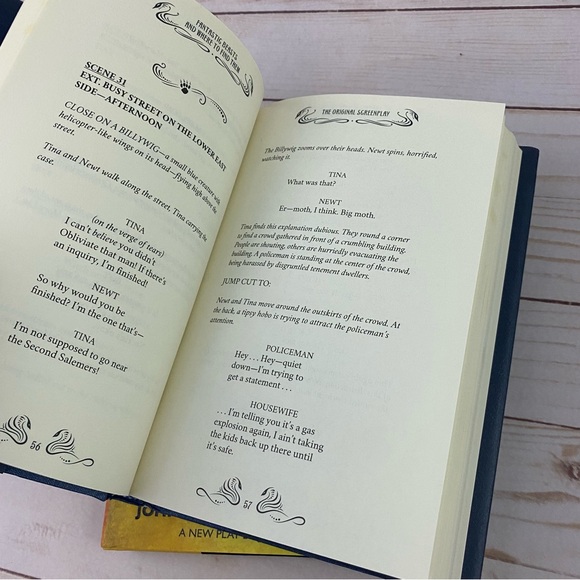 FANTASTIC BEASTS
AND WHERE TO FIND THEM
SCENE 31
EXT. BUSY STREET ON THE LOWER EAST
SIDE—AFTERNOON
CLOSE ON A BILLYWIG—a small blue creature with
helicopter-like wings on its head—flying high above the
street.
Tina and Newt walk along the street, Tina carrying the
case.
TINA
(on the verge of tears)
I can't believe you didn't
Obliviate that man! If there's
an inquiry, I'm finished!
NEWT
So why would you be
finished? I'm the one that's—
TINA
I'm not supposed to go near
the Second Salemers!
56
THE ORIGINAL SCREENPLAY
The Billywig zooms over their heads. Newt spins, horrified,
watching it.
TINA
What was that?
NEWT
Er—moth, I think. Big moth.
Tina finds this explanation dubious. They round a corner
to find a crowd gathered in front of a crumbling building.
People are shouting, others are hurriedly evacuating the
building. A policeman is standing at the center of the crowd,
being harassed by disgruntled tenement dwellers.
JUMP CUT TO:
Newt and Tina move around the outskirts of the crowd. At
the back, a tipsy hobo is trying to attract the policeman's
attention.
POLICEMAN
Hey . . . Hey—quiet
down—I'm trying to
get a statement . . .
HOUSEWIFE
. . . I'm telling you it's a gas
explosion again, I ain't taking
the kids back up there until
it's safe.
57
A NEW PLAY